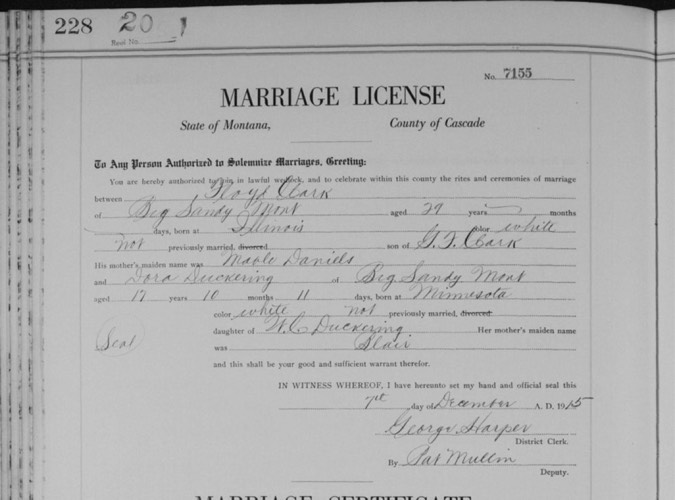 228 20 1
Reel No.
No. 7155
MARRIAGE LICENSE
State of Montana, County of Cascade
To Any Person Authorized to Solemnize Marriages, Greeting:
You are hereby authorized to join in lawful wedlock, and to celebrate within this county the rites and ceremonies of marriage
between Floyd Clark
of Big Sandy Mont aged 29 years months
days, born at Illinois color white
not previously married, divorced son of G. F. Clark
His mother's maiden name was Mable Daniels
and Dora Duckering of Big Sandy Mont
aged 17 years 10 months 11 days, born at Minnesota
color white not previously married, divorced
(Seal) daughter of W. C. Duckering Her mother's maiden name
was Slair
and this shall be your good and sufficient warrant therefor.
IN WITNESS WHEREOF, I have hereunto set my hand and official seal this
7th day of December A. D. 1915
George Harper
District Clerk.
By Pat Mullin
Deputy.
MARRIAGE CERTIFICATE